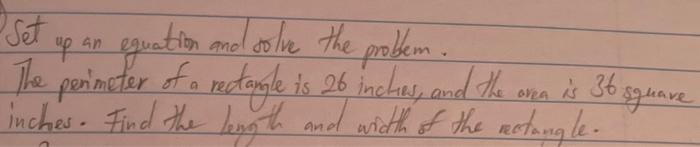 Set up an equation and solve the problem.
The perimeter of a rectangle is 26 inches, and the area is 36 square
inches. Find the length and width of the rectangle.